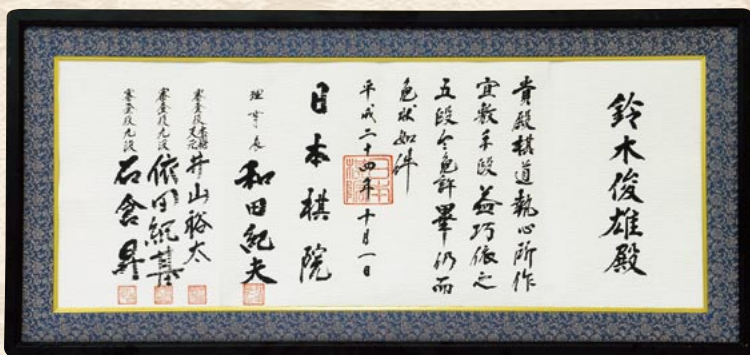 鈴木俊雄殿
貴殿棋道執心所作
宜敷手段益巧依之
五段令免許畢仍而
免状如件
平成二十四年十月一日
日本棋院
理事長 和田紀夫
審査役本因坊天元 井山裕太
審査役九段 依田紀基
審査役九段 石倉昇